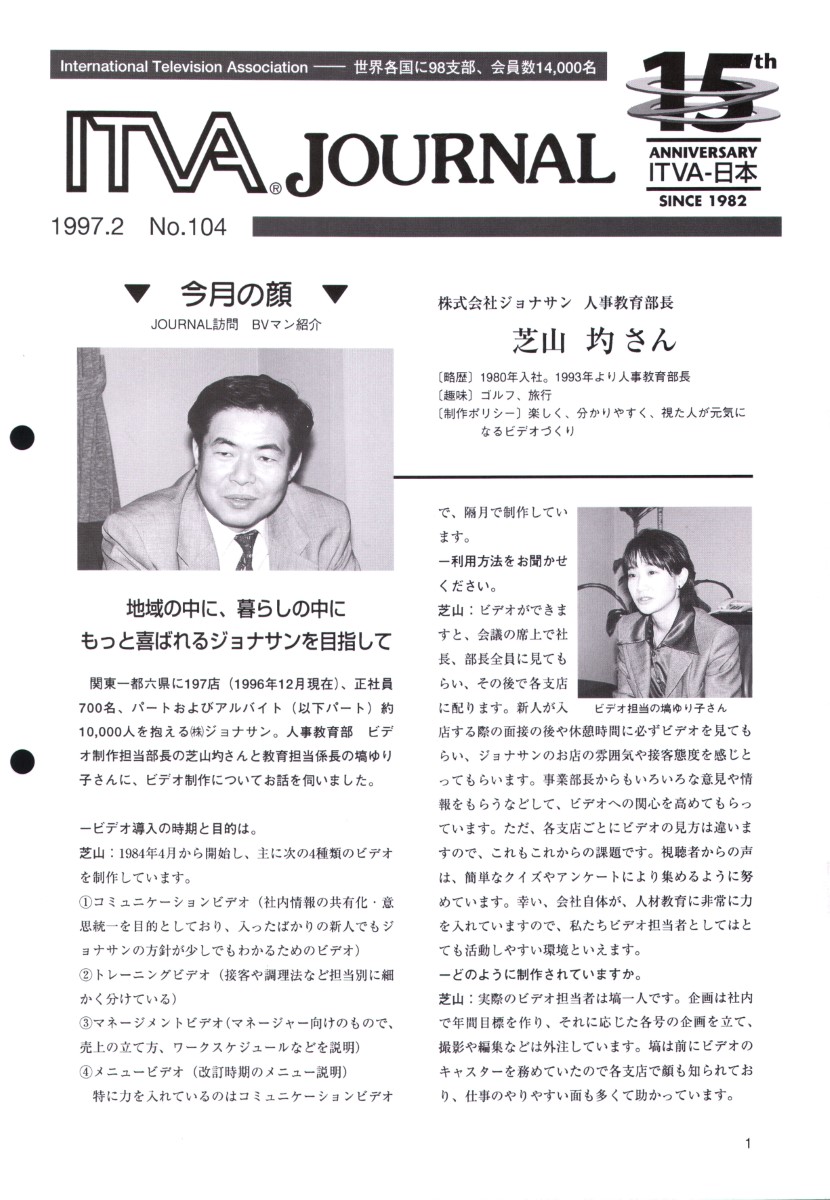 International Television Association ―― 世界各国に98支部、会員数14,000名
15th
ANNIVERSARY
ITVA-日本
SINCE 1982
ITVA® JOURNAL
1997.2 No.104
▼ 今月の顔 ▼
JOURNAL訪問 BVマン紹介
株式会社ジョナサン 人事教育部長
芝山 圴さん
〔略歴〕1980年入社。1993年より人事教育部長
〔趣味〕ゴルフ、旅行
〔制作ポリシー〕楽しく、分かりやすく、視た人が元気に
なるビデオづくり
地域の中に、暮らしの中に
もっと喜ばれるジョナサンを目指して
関東一都六県に197店（1996年12月現在）、正社員
700名、パートおよびアルバイト（以下パート）約
10,000人を抱える㈱ジョナサン。人事教育部 ビデ
オ制作担当部長の芝山圴さんと教育担当係長の塙ゆり
子さんに、ビデオ制作についてお話を伺いました。
―ビデオ導入の時期と目的は。
芝山：1984年4月から開始し、主に次の4種類のビデオ
を制作しています。
①コミュニケーションビデオ（社内情報の共有化・意
思統一を目的としており、入ったばかりの新人でもジ
ョナサンの方針が少しでもわかるためのビデオ）
②トレーニングビデオ（接客や調理法など担当別に細
かく分けている）
③マネージメントビデオ（マネージャー向けのもので、
売上の立て方、ワークスケジュールなどを説明）
④メニュービデオ（改訂時期のメニュー説明）
特に力を入れているのはコミュニケーションビデオ
で、隔月で制作してい
ます。
―利用方法をお聞かせ
ください。
芝山：ビデオができま
すと、会議の席上で社
長、部長全員に見ても
らい、その後で各支店
に配ります。新人が入
店する際の面接の後や休憩時間に必ずビデオを見ても
らい、ジョナサンのお店の雰囲気や接客態度を感じと
ってもらいます。事業部長からもいろいろな意見や情
報をもらうなどして、ビデオへの関心を高めてもらっ
ています。ただ、各支店ごとにビデオの見方は違いま
すので、これもこれからの課題です。視聴者からの声
は、簡単なクイズやアンケートにより集めるように努
めています。幸い、会社自体が、人材教育に非常に力
を入れていますので、私たちビデオ担当者としてはと
ても活動しやすい環境といえます。
―どのように制作されていますか。
芝山：実際のビデオ担当者は塙一人です。企画は社内
で年間目標を作り、それに応じた各号の企画を立て、
撮影や編集などは外注しています。塙は前にビデオの
キャスターを務めていたので各支店で顔も知られてお
り、仕事のやりやすい面も多くて助かっています。
ビデオ担当の塙ゆり子さん
1